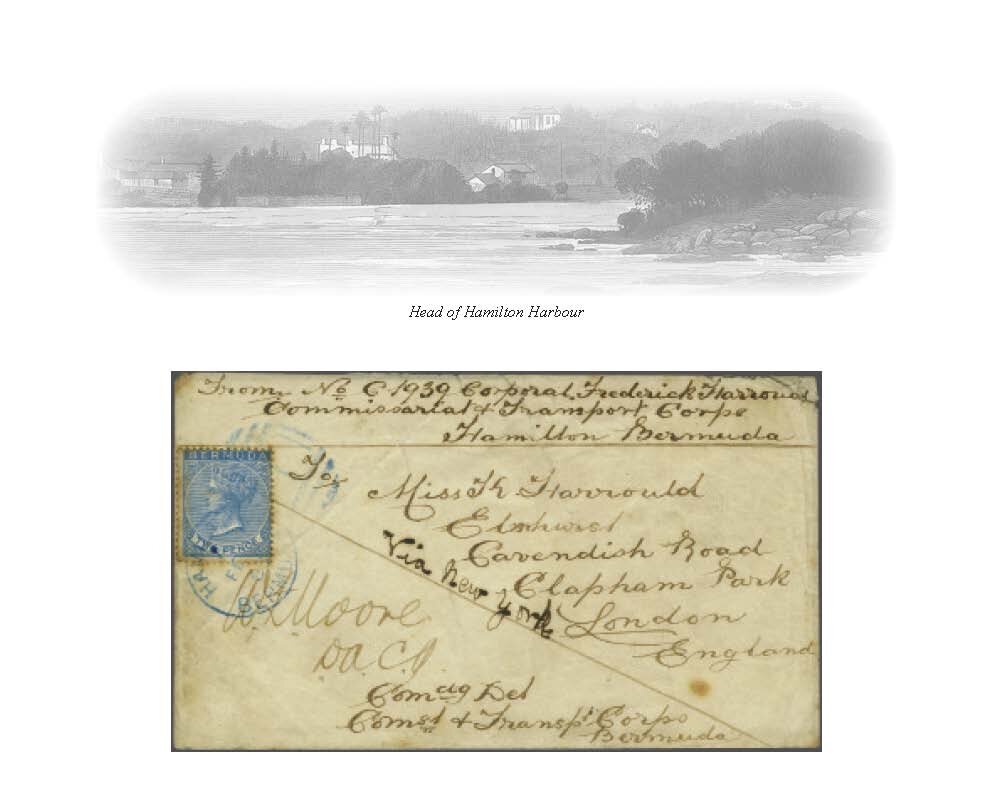 Head of Hamilton Harbour
From No C. 1939 Corporal Frederick Harrould
Commissariat & Transport Corps
Hamilton Bermuda
BERMUDA
TWO PENCE
To
Miss Harrould
Elmhurst
Cavendish Road
Clapham Park
London
England
Via New York
BERMU
Moore
D.A.C.G.
Comdg Det
Comst & Transpt Corps
Bermuda